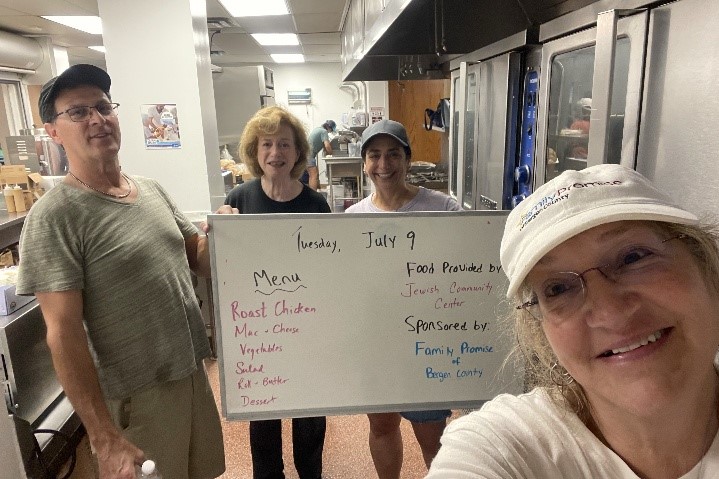 Tuesday, July 9
Menu
Roast Chicken
Mac + Cheese
Vegetables
Salad
Roll + Butter
Dessert
Food Provided by
Jewish Community
Center
Sponsored by:
Family Promise
of
Bergen County
Family Promise
Bergen County